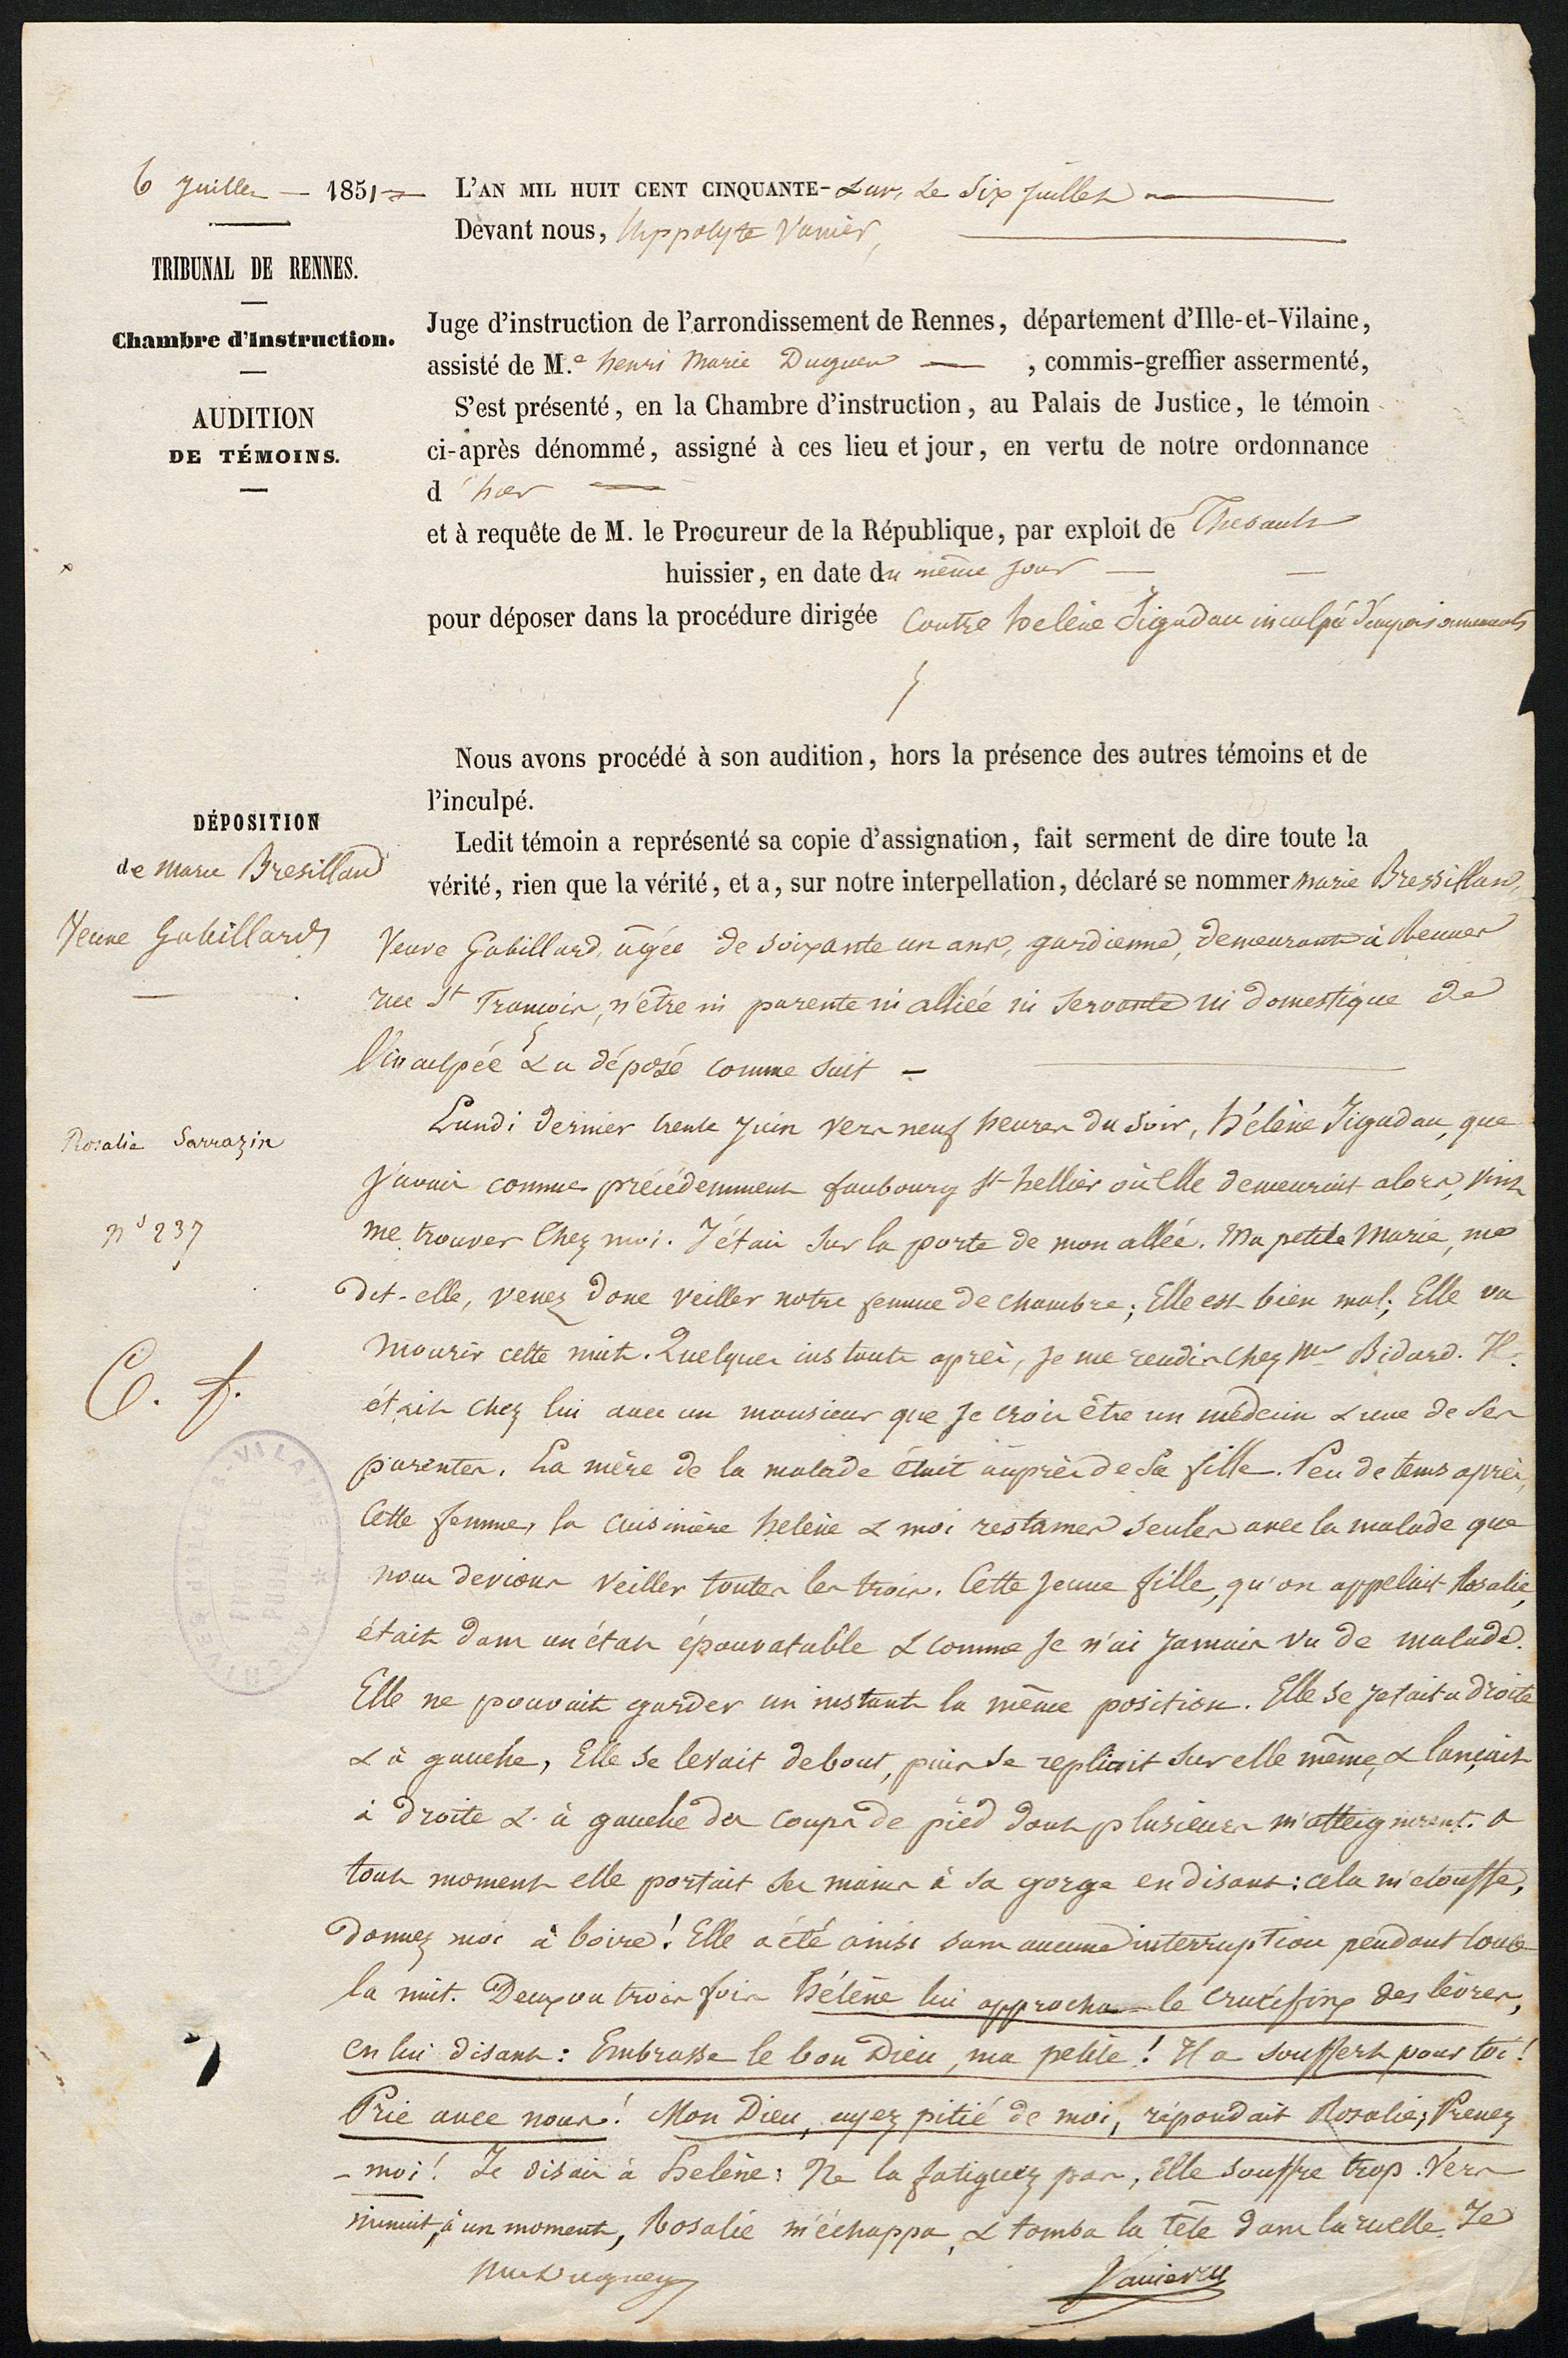 6 Juillet — 1851
TRIBUNAL DE RENNES.
Chambre d'Instruction.
AUDITION
DE TÉMOINS.
L'AN MIL HUIT CENT CINQUANTE-& un, Le Six Juillet
Devant nous, Hyppolyte Vanier,
Juge d'instruction de l'arrondissement de Rennes, département d'Ille-et-Vilaine,
assisté de M.e henri Marie Duguen —, commis-greffier assermenté,
S'est présenté, en la Chambre d'instruction, au Palais de Justice, le témoin
ci-après dénommé, assigné à ces lieu et jour, en vertu de notre ordonnance
d'hier —
et à requête de M. le Procureur de la République, par exploit de Thebault
huissier, en date du même jour —
pour déposer dans la procédure dirigée Contre helène Jigadau inculpée d'empoisonnements
Nous avons procédé à son audition, hors la présence des autres témoins et de
l'inculpé.
DÉPOSITION
de Marie Bresilland
Veuve Gabillard
Ledit témoin a représenté sa copie d'assignation, fait serment de dire toute la
vérité, rien que la vérité, et a, sur notre interpellation, déclaré se nommer Marie Bressilland,
Veuve Gabillard, âgée de soixante un ans, gardienne, demeurant à Rennes
rue St François, n'être ni parente ni alliée ni servante ni domestique de
l'inculpée & a déposé comme suit —
Rosalie Sarrazin
n° 237
C. f.
Lundi dernier trente Juin vers neuf heures du soir, hélène Jigadau, que
J'avais connue précédemment faubourg St hellier où Elle demeurait alors, vint
me trouver Chez moi. J'étais sur la porte de mon allée. Ma petite Marie, me
dit-elle, venez donc veiller notre femme de chambre; Elle est bien mal; Elle va
mourir cette nuit. Quelques instants après, Je me rendis chez Mr Bidard. Il
était chez lui avec un monsieur que Je crois être un médecin & une de ses
parentes. La mère de la malade était auprès de sa fille. Peu de tems après,
Cette femme, la cuisinière helène & moi restames seules avec la malade que
nous devions veiller toutes les trois. Cette Jeune fille, qu'on appelait Rosalie,
était dans un état épouvatable & comme Je n'ai Jamais vu de malade.
Elle ne pouvait garder un instant la même position. Elle se Jetait à droite
& à gauche, Elle se levait debout, puis se repliait sur elle même, & lançait
à droite & à gauche des coups de pied dont plusieurs m'atteignirent. A
tout moment elle portait ses mains à sa gorge en disant: cela m'etouffe,
Donnez moi à boire! Elle a été ainsi sans aucune interruption pendant toute
la nuit. Deux ou trois fois hélène lui approcha le crucifix des lèvres,
en lui disant: Embrasse le bon Dieu, ma petite! Il a souffert pour toi!
Prie avec nous! Mon Dieu, ayez pitié de moi, répondait Rosalie; Prenez
-moi! Je disais à helène: Ne la fatiguez pas, Elle souffre trop. Vers
minuit, à un moment, Rosalie m'échappa, & tomba la tête dans la ruelle. Je
Vanier